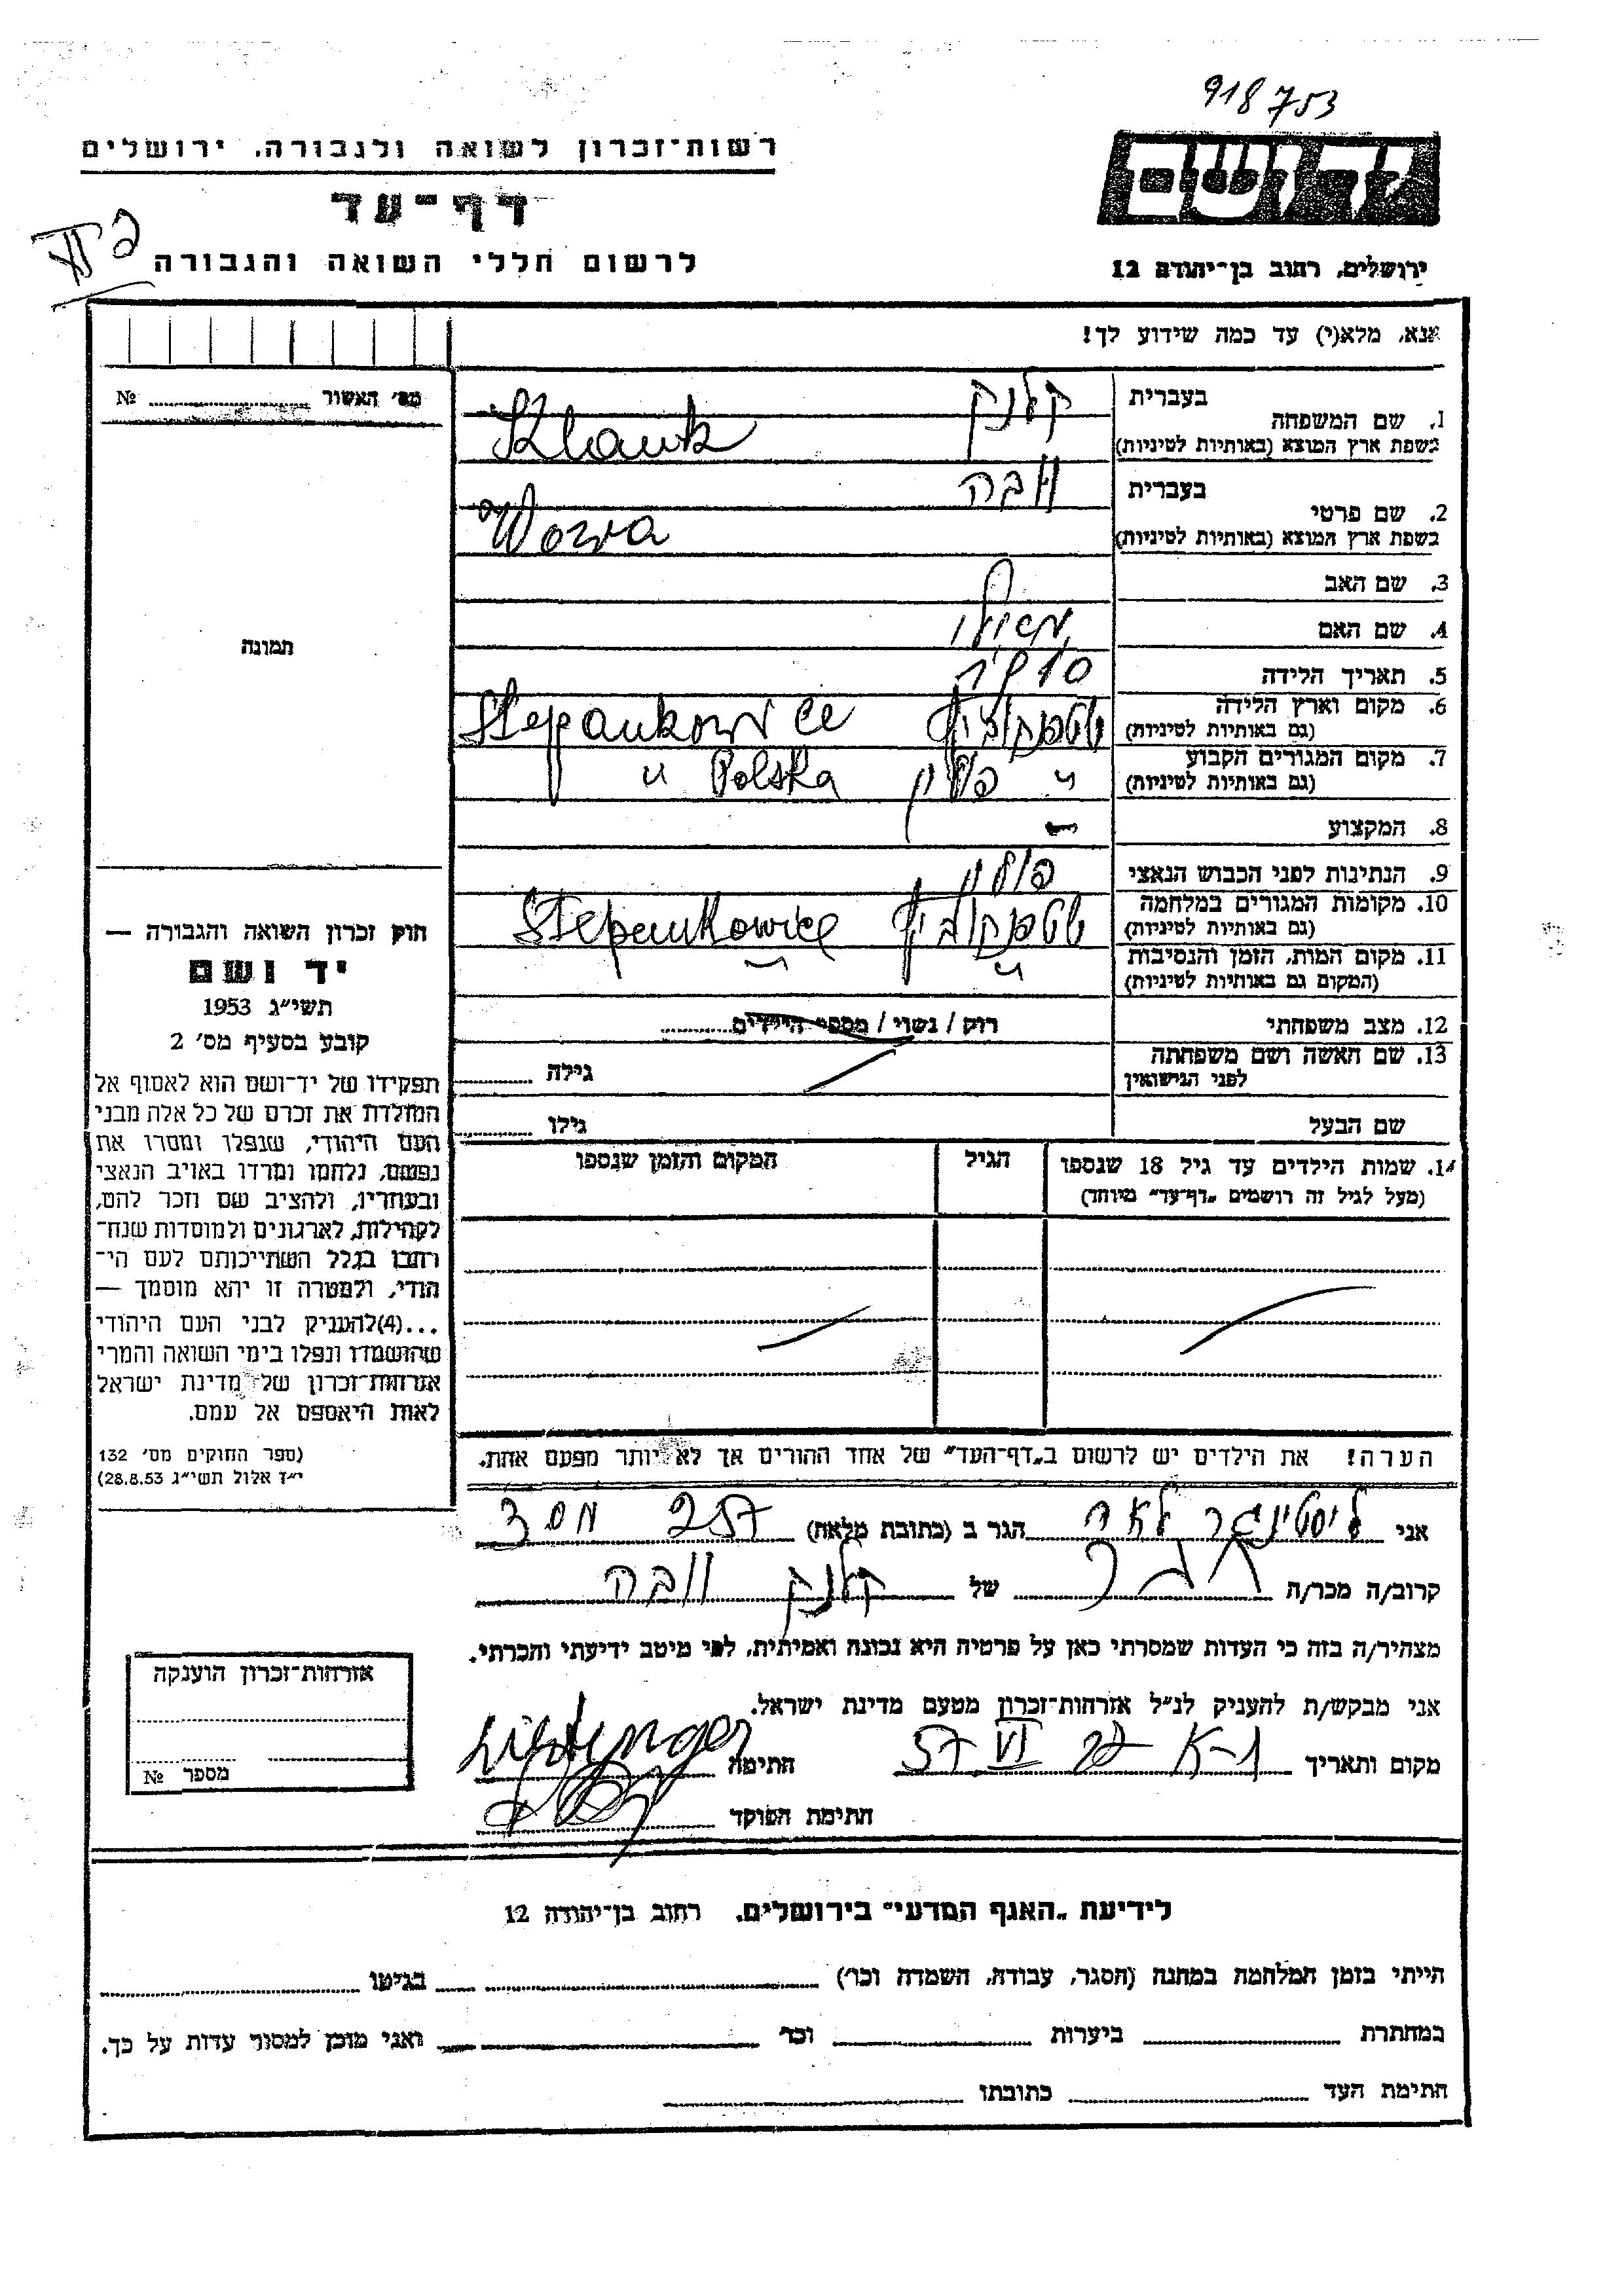 918753
רשות־זכרון לשואה ולגבורה. ירושלים
יד ושם
דף־עד
לרשום חללי השואה והגבורה
ירושלים, רחוב בן־יהודה 12
אנא, מלא(י) עד כמה שידוע לך!
מס׳ האשור № 
1. שם המשפחה
בעברית קלנק
בשפת ארץ המוצא (באותיות לטיניות) Klank
2. שם פרטי
בעברית וובה
בשפת ארץ המוצא (באותיות לטיניות) Wowa
3. שם האב
4. שם האם
5. תאריך הלידה
6. מקום וארץ הלידה
(גם באותיות לטיניות) Stepankowice
7. מקום המגורים הקבוע
(גם באותיות לטיניות) פולין Polska
8. המקצוע -
9. הנתינות לפני הכבוש הנאצי פולין
10. מקומות המגורים במלחמה
(גם באותיות לטיניות) Stepankowice
11. מקום המות, הזמן והנסיבות
(המקום גם באותיות לטיניות) "
12. מצב משפחתי רוק / נשוי / מספר הילדים
13. שם האשה ושם משפחתה
לפני הנישואין גילה
שם הבעל גילו
14. שמות הילדים עד גיל 18 שנספו
(מעל לגיל זה רושמים „דף־עד” מיוחד)
הגיל
המקום והזמן שנספו
הערה! את הילדים יש לרשום ב„דף־העד” של אחד ההורים אך לא יותר מפעם אחת.
תמונה
חוק זכרון השואה והגבורה —
יד ושם
תשי״ג 1953
קובע בסעיף מס׳ 2
תפקידו של יד־ושם הוא לאסוף אל
המולדת את זכרם של כל אלה מבני
העם היהודי, שנפלו ומסרו את
נפשם, נלחמו ומרדו באויב הנאצי
ובעוזריו, ולהציב שם וזכר להם,
לקהילות, לארגונים ולמוסדות שנח־
רבו בגלל השתייכותם לעם הי־
הודי, ולמטרה זו יהא מוסמך —
...(4)להעניק לבני העם היהודי
שהושמדו ונפלו בימי השואה והמרי
אזרחות־זכרון של מדינת ישראל
לאות היאספם אל עמם.
(ספר החוקים מס׳ 132
י״ז אלול תשי״ג 28.8.53)
אני ליסטינגר לאה הגר ב (כתובת מלאה)
קרוב/ה מכר/ה של קלנק וובה
מצהיר/ה בזה כי העדות שמסרתי כאן על פרטיה היא נכונה ואמיתית, לפי מיטב ידיעתי והכרתי.
אני מבקש/ת להעניק לנ״ל אזרחות־זכרון מטעם מדינת ישראל.
מקום ותאריך VI 57 חתימה Listynger
חתימת הפוקד
אזרחות־זכרון הוענקה
מספר №
לידיעת „האגף המדעי” בירושלים. רחוב בן־יהודה 12
הייתי בזמן המלחמה במחנה (הסגר, עבודה, השמדה וכו׳) בגיטו
במחתרת ביערות וכו׳ ואני מוכן למסור עדות על כך.
חתימת העד כתובתו